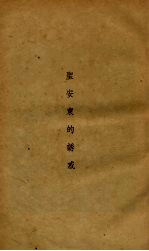 聖安東的誘惑